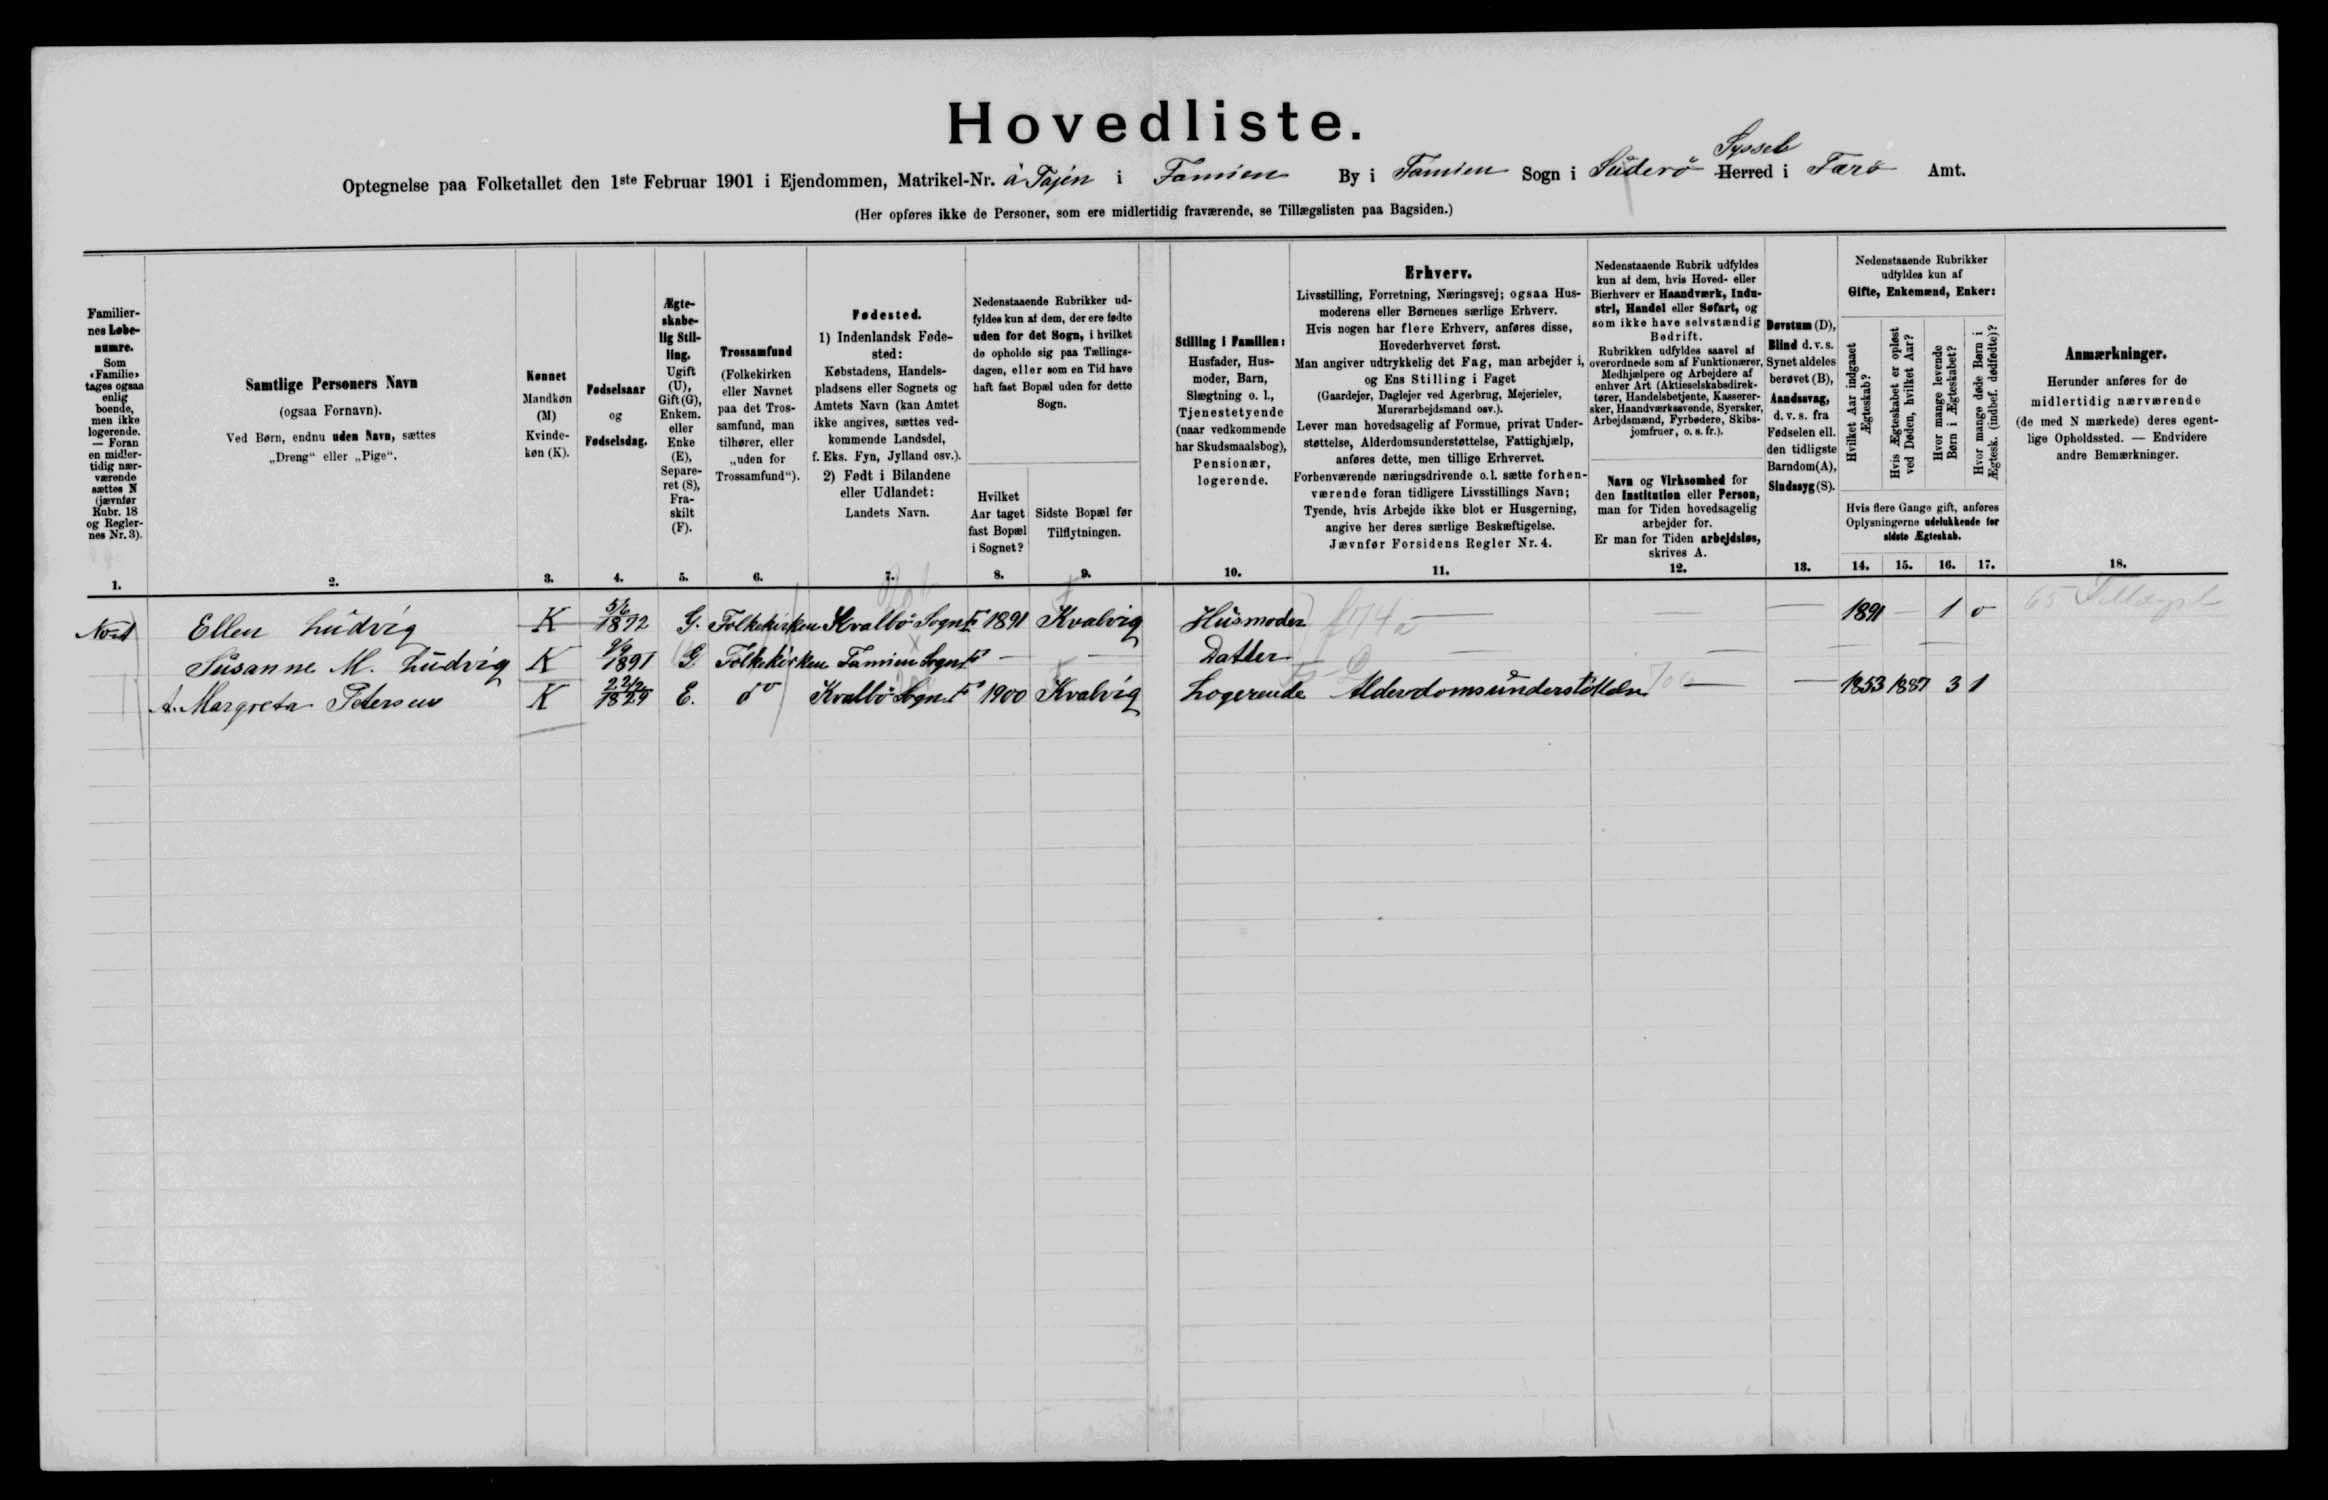 Hovedliste.
Optegnelse paa Folketallet den 1ste Februar 1901 i Ejendommen, Matrikel-Nr. à Tajen i Famien By i Famien Sogn i Süderö Herred Syssel i Færø Amt.
(Her opføres ikke de Personer, som ere midlertidig fraværende, se Tillægslisten paa Bagsiden.)
Familier-
nes Løbe-
numre.
Som
«Familie»
tages ogsaa
enlig
boende,
men ikke
logerende.
— Foran
en midler-
tidig nær-
værende
sættes N
(jævnfør
Rubr. 18
og Regler-
nes Nr. 3).
1.
Samtlige Personers Navn
(ogsaa Fornavn).
Ved Børn, endnu uden Navn, sættes
„Dreng“ eller „Pige“.
2.
Kønnet
Mandkøn
(M)
Kvinde-
køn (K).
3.
Fødselsaar
og
Fødselsdag.
4.
Ægte-
skabe-
lig Stil-
ling.
Ugift
(U),
Gift (G),
Enkem.
eller
Enke
(E),
Separe-
ret (S),
Fra-
skilt
(F).
5.
Trossamfund
(Folkekirken
eller Navnet
paa det Tros-
samfund, man
tilhører, eller
„uden for
Trossamfund“).
6.
Fødested.
1) Indenlandsk Føde-
sted:
Købstadens, Handels-
pladsens eller Sognets og
Amtets Navn (kan Amtet
ikke angives, sættes ved-
kommende Landsdel,
f. Eks. Fyn, Jylland osv.).
2) Født i Bilandene
eller Udlandet:
Landets Navn.
7.
Nedenstaaende Rubrikker ud-
fyldes kun af dem, der ere fødte
uden for det Sogn, i hvilket
de opholde sig paa Tællings-
dagen, eller som en Tid have
haft fast Bopæl uden for dette
Sogn.
Hvilket
Aar taget
fast Bopæl
i Sognet?
8.
Sidste Bopæl før
Tilflytningen.
9.
Stilling i Familien:
Husfader, Hus-
moder, Barn,
Slægtning o. l.,
Tjenestetyende
(naar vedkommende
har Skudsmaalsbog),
Pensionær,
logerende.
10.
Erhverv.
Livsstilling, Forretning, Næringsvej; ogsaa Hus-
moderens eller Børnenes særlige Erhverv.
Hvis nogen har flere Erhverv, anføres disse,
Hovederhvervet først.
Man angiver udtrykkelig det Fag, man arbejder i,
og Ens Stilling i Faget
(Gaardejer, Daglejer ved Agerbrug, Mejerielev,
Murerarbejdsmand osv.).
Lever man hovedsagelig af Formue, privat Under-
støttelse, Alderdomsunderstøttelse, Fattighjælp,
anføres dette, men tillige Erhvervet.
Forhenværende næringsdrivende o. l. sætte forhen-
værende foran tidligere Livsstillings Navn;
Tyende, hvis Arbejde ikke blot er Husgerning,
angive her deres særlige Beskæftigelse.
Jævnfør Forsidens Regler Nr. 4.
11.
Nedenstaaende Rubrik udfyldes
kun af dem, hvis Hoved- eller
Bierhverv er Haandværk, Indu-
stri, Handel eller Søfart, og
som ikke have selvstændig
Bedrift.
Rubrikken udfyldes saavel af
overordnede som af Funktionærer,
Medhjælpere og Arbejdere af
enhver Art (Aktieselskabsdirek-
tører, Handelsbetjente, Kasserer-
sker, Haandværkssvende, Syersker,
Arbejdsmænd, Fyrbødere, Skibs-
jomfruer, o. s. fr.).
Navn og Virksomhed for
den Institution eller Person,
man for Tiden hovedsagelig
arbejder for.
Er man for Tiden arbejdsløs,
skrives A.
12.
Døvstum (D),
Blind d. v. s.
Synet aldeles
berøvet (B),
Aandssvag,
d. v. s. fra
Fødselen ell.
den tidligste
Barndom (A),
Sindssyg (S).
13.
Nedenstaaende Rubrikker
udfyldes kun af
Gifte, Enkemænd, Enker:
Hvilket Aar indgaaet
Ægteskab?
Hvis Ægteskabet er opløst
ved Døden, hvilket Aar?
Hvor mange levende
Børn i Ægteskabet?
Hvor mange døde Børn i
Ægtesk. (indbef. dødfødte)?
Hvis flere Gange gift, anføres
Oplysningerne udelukkende for
sidste Ægteskab.
14. 15. 16. 17.
Anmærkninger.
Herunder anføres for de
midlertidig nærværende
(de med N mærkede) deres egent-
lige Opholdssted. — Endvidere
andre Bemærkninger.
18.
No 1 Ellen Lüdvig K 5/6 1872 G. Folkekirken Kvalbö Sogn F 1891 Kvalvig Husmoder — — — 1891 — 1 0
Süsanne M. Lüdvig K 9/9 1891 G Folkekirken Famien Sogn F — — Datter — — — —
A. Margreta Petersen K 22/12 1829 E. do Kvalbö Sogn F 1900 Kvalvig Logerende Alderdomsünderstöttelse — — 1853 1887 3 1